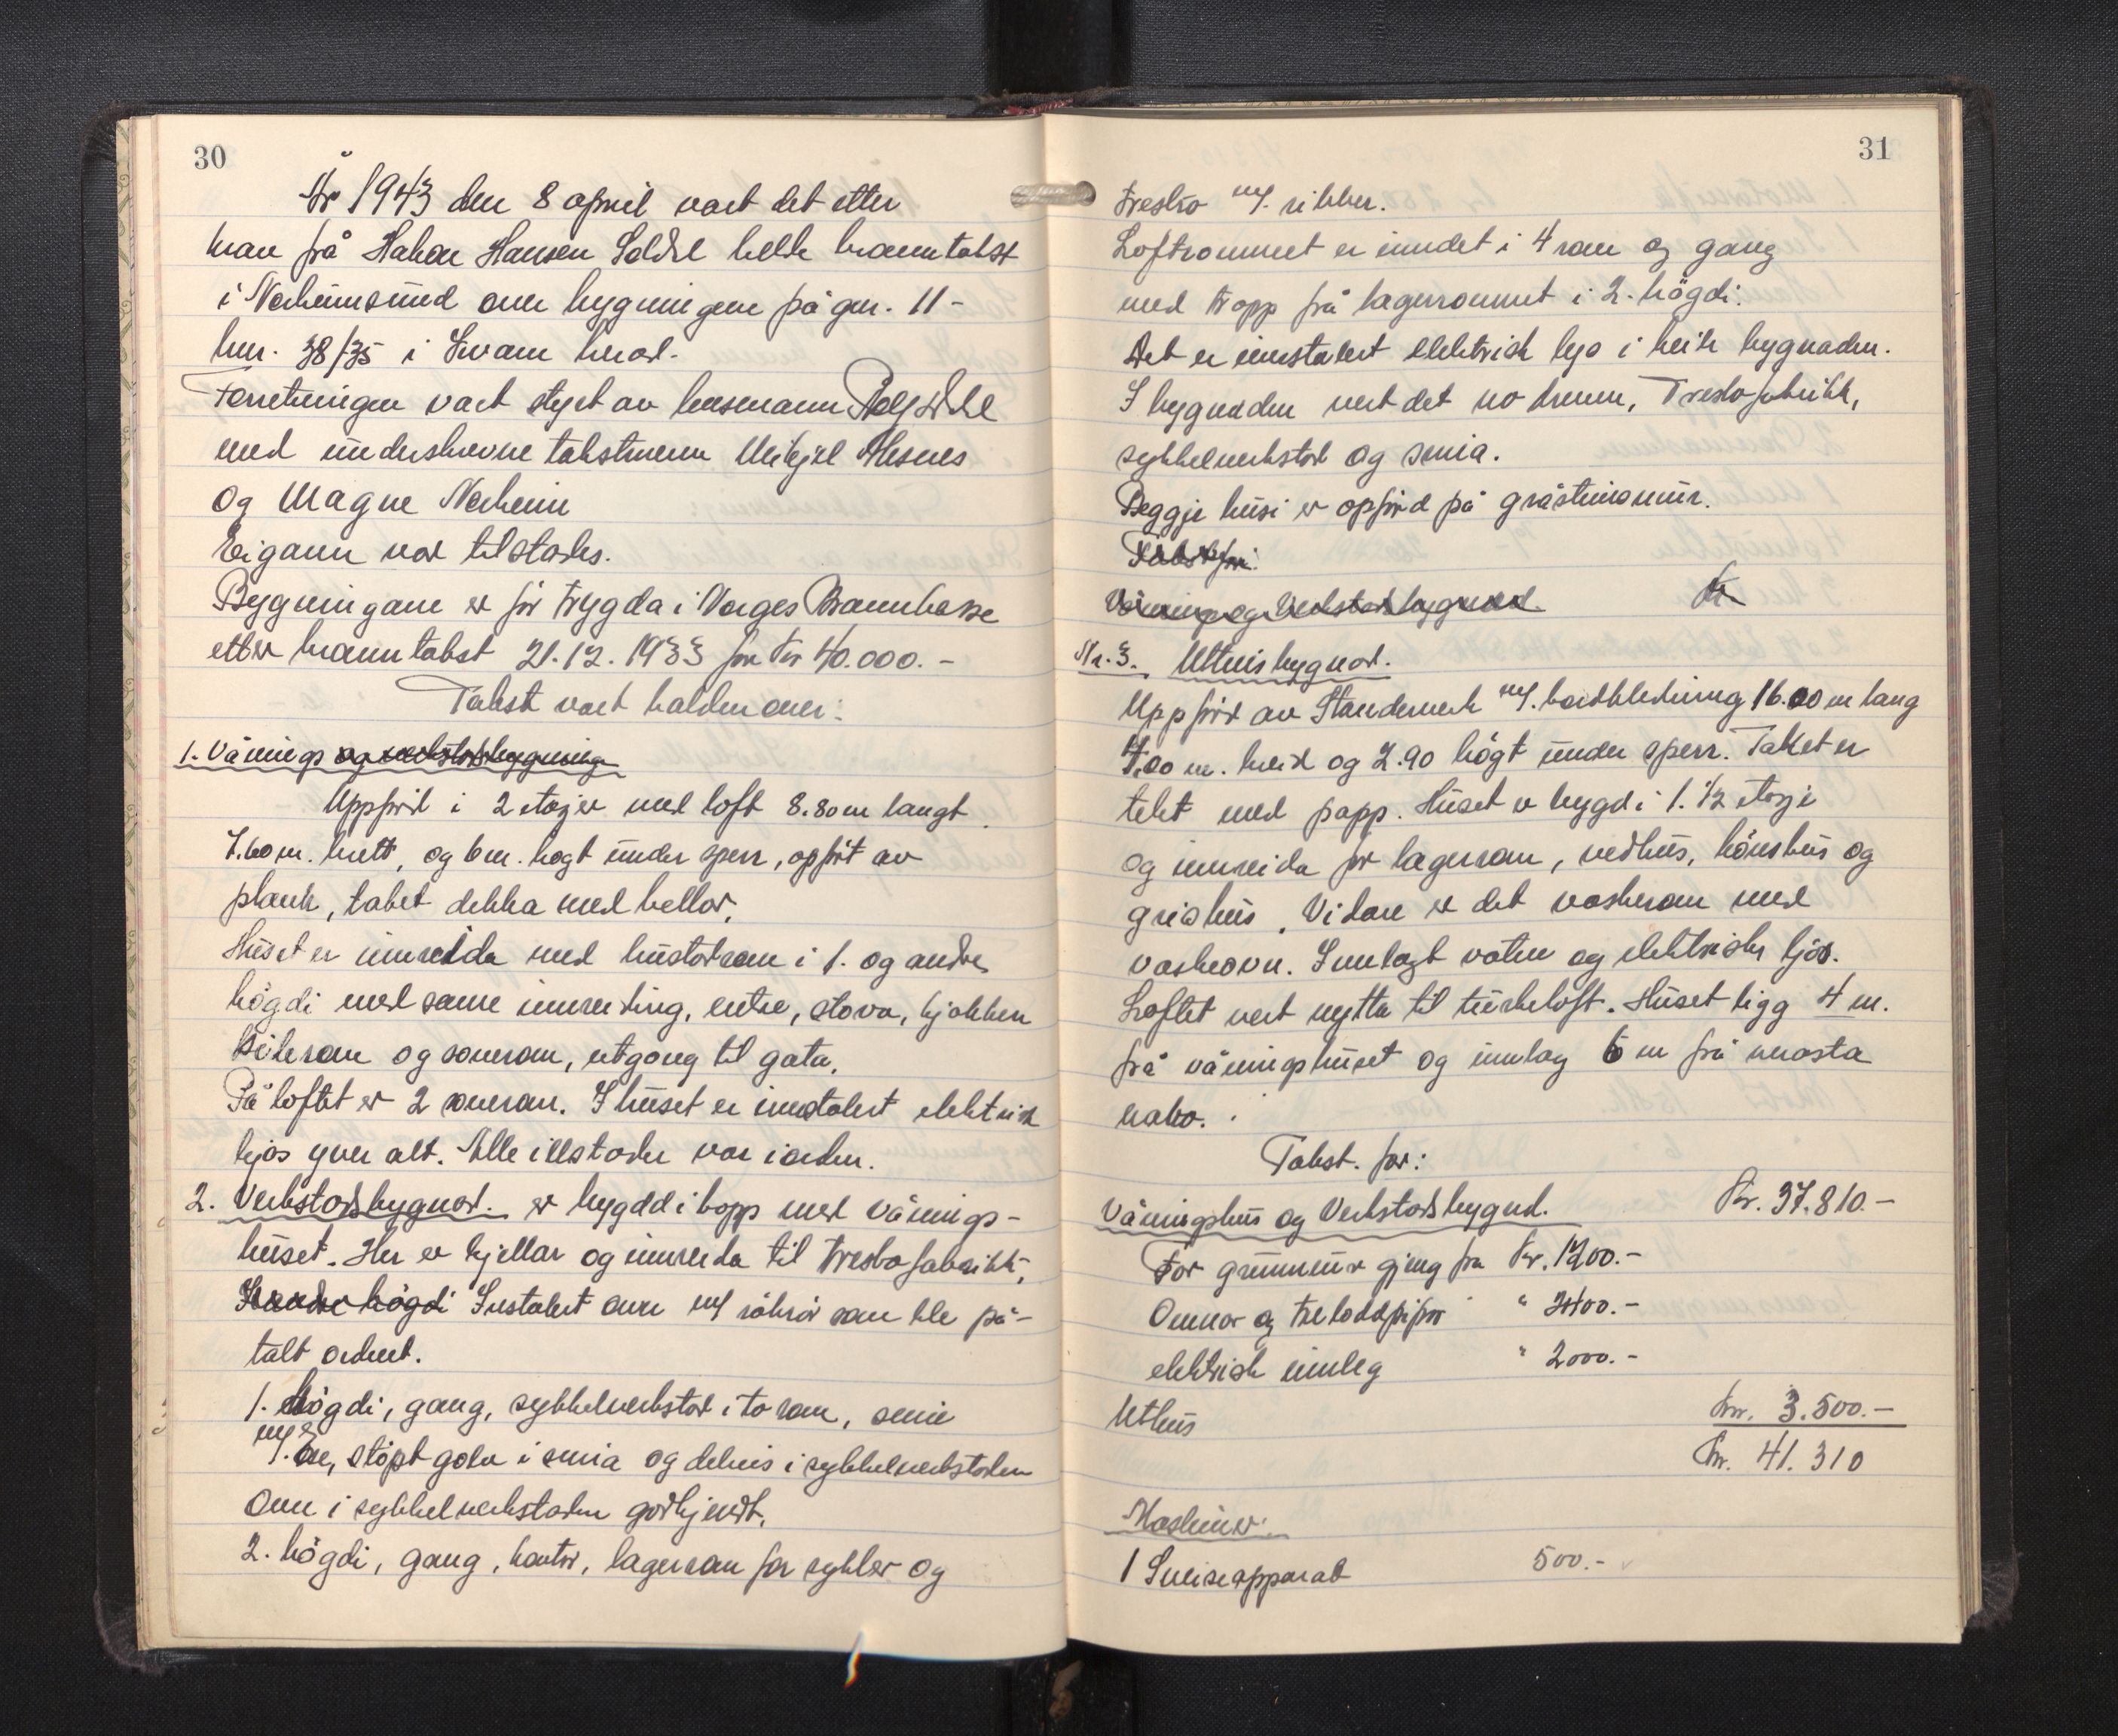 30
År 1943 den 8 april vart det etter
krav frå Hakon Hansen Soldal helde branntakst
i Norheimsund over bygningene på gnr. 11-
bnr. 38/35 i Kvam herad.
Forretningen vart styrt av lensmann
med underskrevne takstmenn Mikjel Alsnes
og Magne Norheim
Eigaren var tilstades.
Bygningane er för trygda i Norges Brannkasse
etter branntakst 21.12.1933 for kr 40.000.-
Takst vart halden over:
1. Vånings og verkstadsbygning
Uppförd i 2 etasjer med loft 8.80 m langt
7.60 m. brett, og 6 m. högt under sperr, opfört av
plank, taket dekka med hellor.
Huset er innreida med hustadrom i 1. og andre
högdi med same innreiding, entre, stova, kjøkken
og soverom, utgong til gata.
På loftet er 2 soverom. I huset er innstalert elektrisk
ljos yver alt. Alle illstader var i orden.
2. Verkstadsbygnad. er bygdd i hopp med vånings-
huset. Her er kjellar og innreida til treskofabrikk,
I andre högdi Instalert omn m/ rökrör som ble på-
talt ordnet.
1. högdi, gang, sykkelverkstad i to rom, smie
m/. støpt golv i smia og delvis i sykkelverkstaden
Omn i sykkelverkstaden godkjendt.
2. högdi, gang, kontor, lagerrom for sykler og
31
tresko m/. ribber.
Loftrommet er inndelt i 4 rom og gang
med tropp frå lagerrommet i 2. högdi.
Det er innstalert elektrisk lys i heile bygnaden.
I bygnaden vert det no drevn, Treskofabrikk,
sykkelverkstad og smia.
Beggje husi er opförd på gråsteinsmur.
Takst for:
Vånings og Verkstadsbygnad. Kr
Nr. 3. Uthusbygnad.
Uppförd av Standerverk m/. bordkledning 16.00 m lang
7.00 m. breid og 2.90 högt under sperr. Taket er
tekt med papp. Huset er bygd i 1. 1/2 etasje
og innreida for lagerrom, vedhus, hönshus og
grishus. Vidare er det vaskerom med
vaskeovn. Innlagt vatn og elektriske ljos.
Loftet vert nytta til turkeloft. Huset ligg 4 m.
frå våningshuset og innlag 6 m frå nærasta
nabo.
Takst. for:
Våningshus og Verkstadsbygnd. Kr. 37.810.-
For grunnmur gjeng fra Kr. 1700.-
Omnar og teloddpipor " 2400.-
elektrisk innleg " 2000.-
Uthus Kr. 3.500.-
Kr. 41.310
Maskiner:
1 Sveiseapparat 500.-